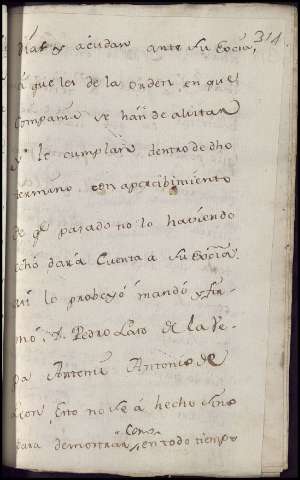 314.
dias y acudan ante Su Exçia,
a que les de la orden, en que
Compania se han de alistar
y lo cumplan dentro de dho
termino con apercibimiento
de qe pasado no lo haviendo
echo dará Cuenta a Su Exçia.
assi lo probeyó mandó y fir-
mó, D. Pedro Laso de la Ve-
ga Antemi Antonio de
Esto no se á hecho sino
para demostrar, como en todo tiempo